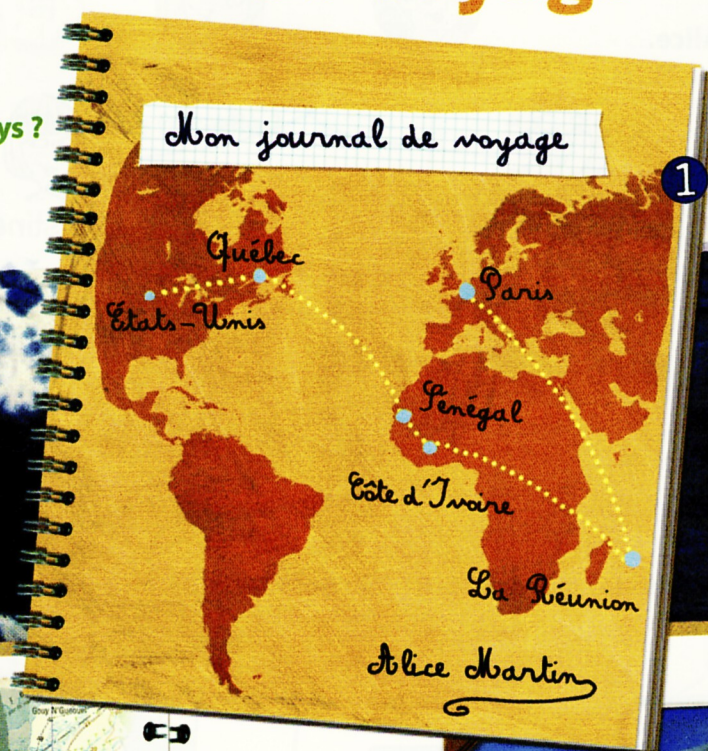 ys ?
Mon journal de voyage
1
Québec
Paris
États-Unis
Sénégal
Côte d'Ivoire
La Réunion
Alice Martin